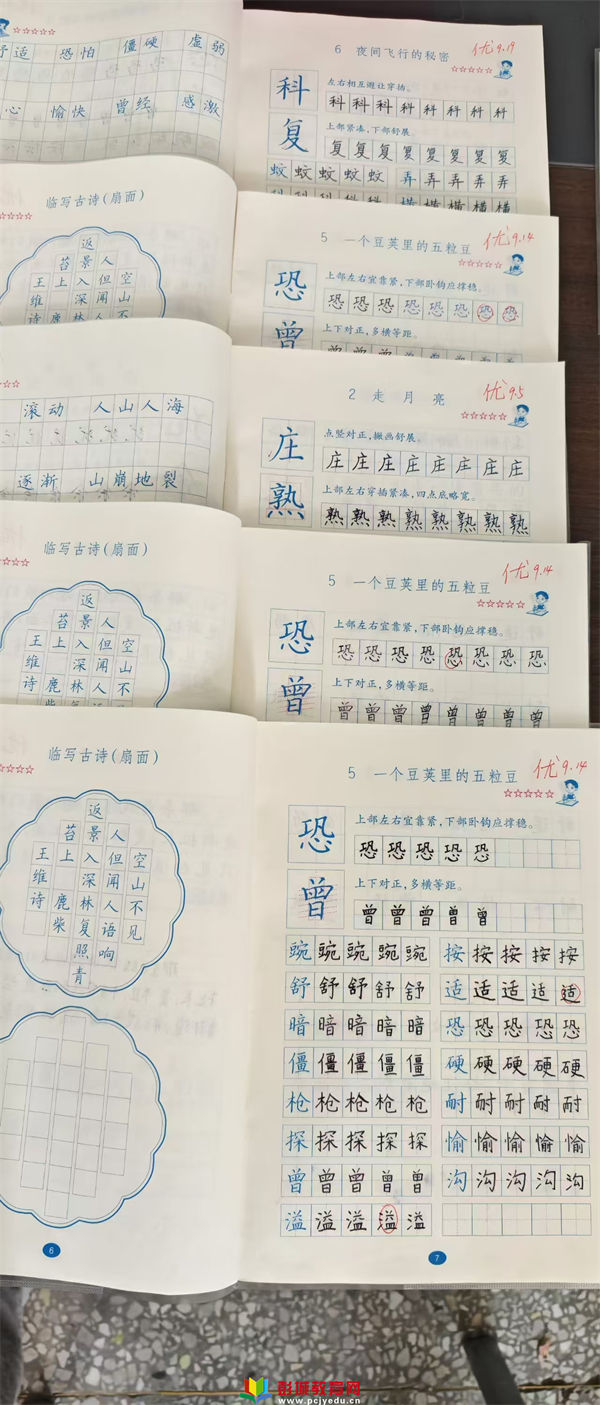 舒适 恐怕 僵硬 虚弱
心 愉快 曾经 感激
6 夜间飞行的秘密
优 9.19
左右相互避让穿插。
科 科科科科科科科科
上部紧凑,下部舒展。
复 复复复复复复复复
蚊蚊蚊蚊蚊 弄弄弄弄弄
科科科科科 横横横横横
临写古诗(扇面)
返
苔景人
王上入但空
维 深闻山
诗鹿林人不
5 一个豆荚里的五粒豆
优 9.14
上部左右宜靠紧,下部卧钩应撑稳。
恐 恐恐恐恐恐恐恐恐
上下对正,多横等距。
曾 曾曾曾曾曾曾曾曾
滚动 人山人海
逐渐 山崩地裂
2 走月亮
优 9.5
点竖对正,撇画舒展。
庄 庄庄庄庄庄庄庄庄
上部左右穿插紧凑,四点底略宽。
熟 熟熟熟熟熟熟熟熟
临写古诗(扇面)
返
苔景人
王上入但空
维 深闻山
诗鹿林人不
5 一个豆荚里的五粒豆
优 9.14
上部左右宜靠紧,下部卧钩应撑稳。
恐 恐恐恐恐恐恐恐恐
上下对正,多横等距。
曾 曾曾曾曾曾曾曾曾
临写古诗(扇面)
返
苔景人
王上入但空
维 深闻山
诗鹿林人不
柴复语见
照响
青
6
5 一个豆荚里的五粒豆
优 9.14
上部左右宜靠紧,下部卧钩应撑稳。
恐 恐恐恐恐恐
上下对正,多横等距。
曾 曾曾曾曾曾
豌豌豌豌豌 按按按按按
舒舒舒舒舒 适适适适适
暗暗暗暗暗 恐恐恐恐恐
僵僵僵僵僵 硬硬硬硬硬
枪枪枪枪枪 耐耐耐耐耐
探探探探探 愉愉愉愉愉
曾曾曾曾曾 沟沟沟沟沟
溢溢溢溢溢
7
彭城教育网
www.pcjyedu.cn